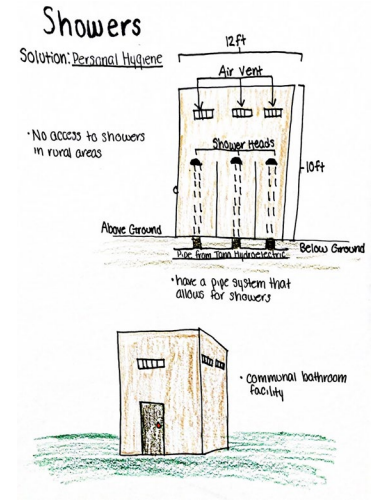 Showers
Solution: Personal Hygiene
12ft
Air Vent
• No access to showers
in rural areas
Shower Heads
10ft
Above Ground
Below Ground
Pipe from Tann Hydroelectric
• have a pipe system that
allows for showers
• Communal bathroom
facility